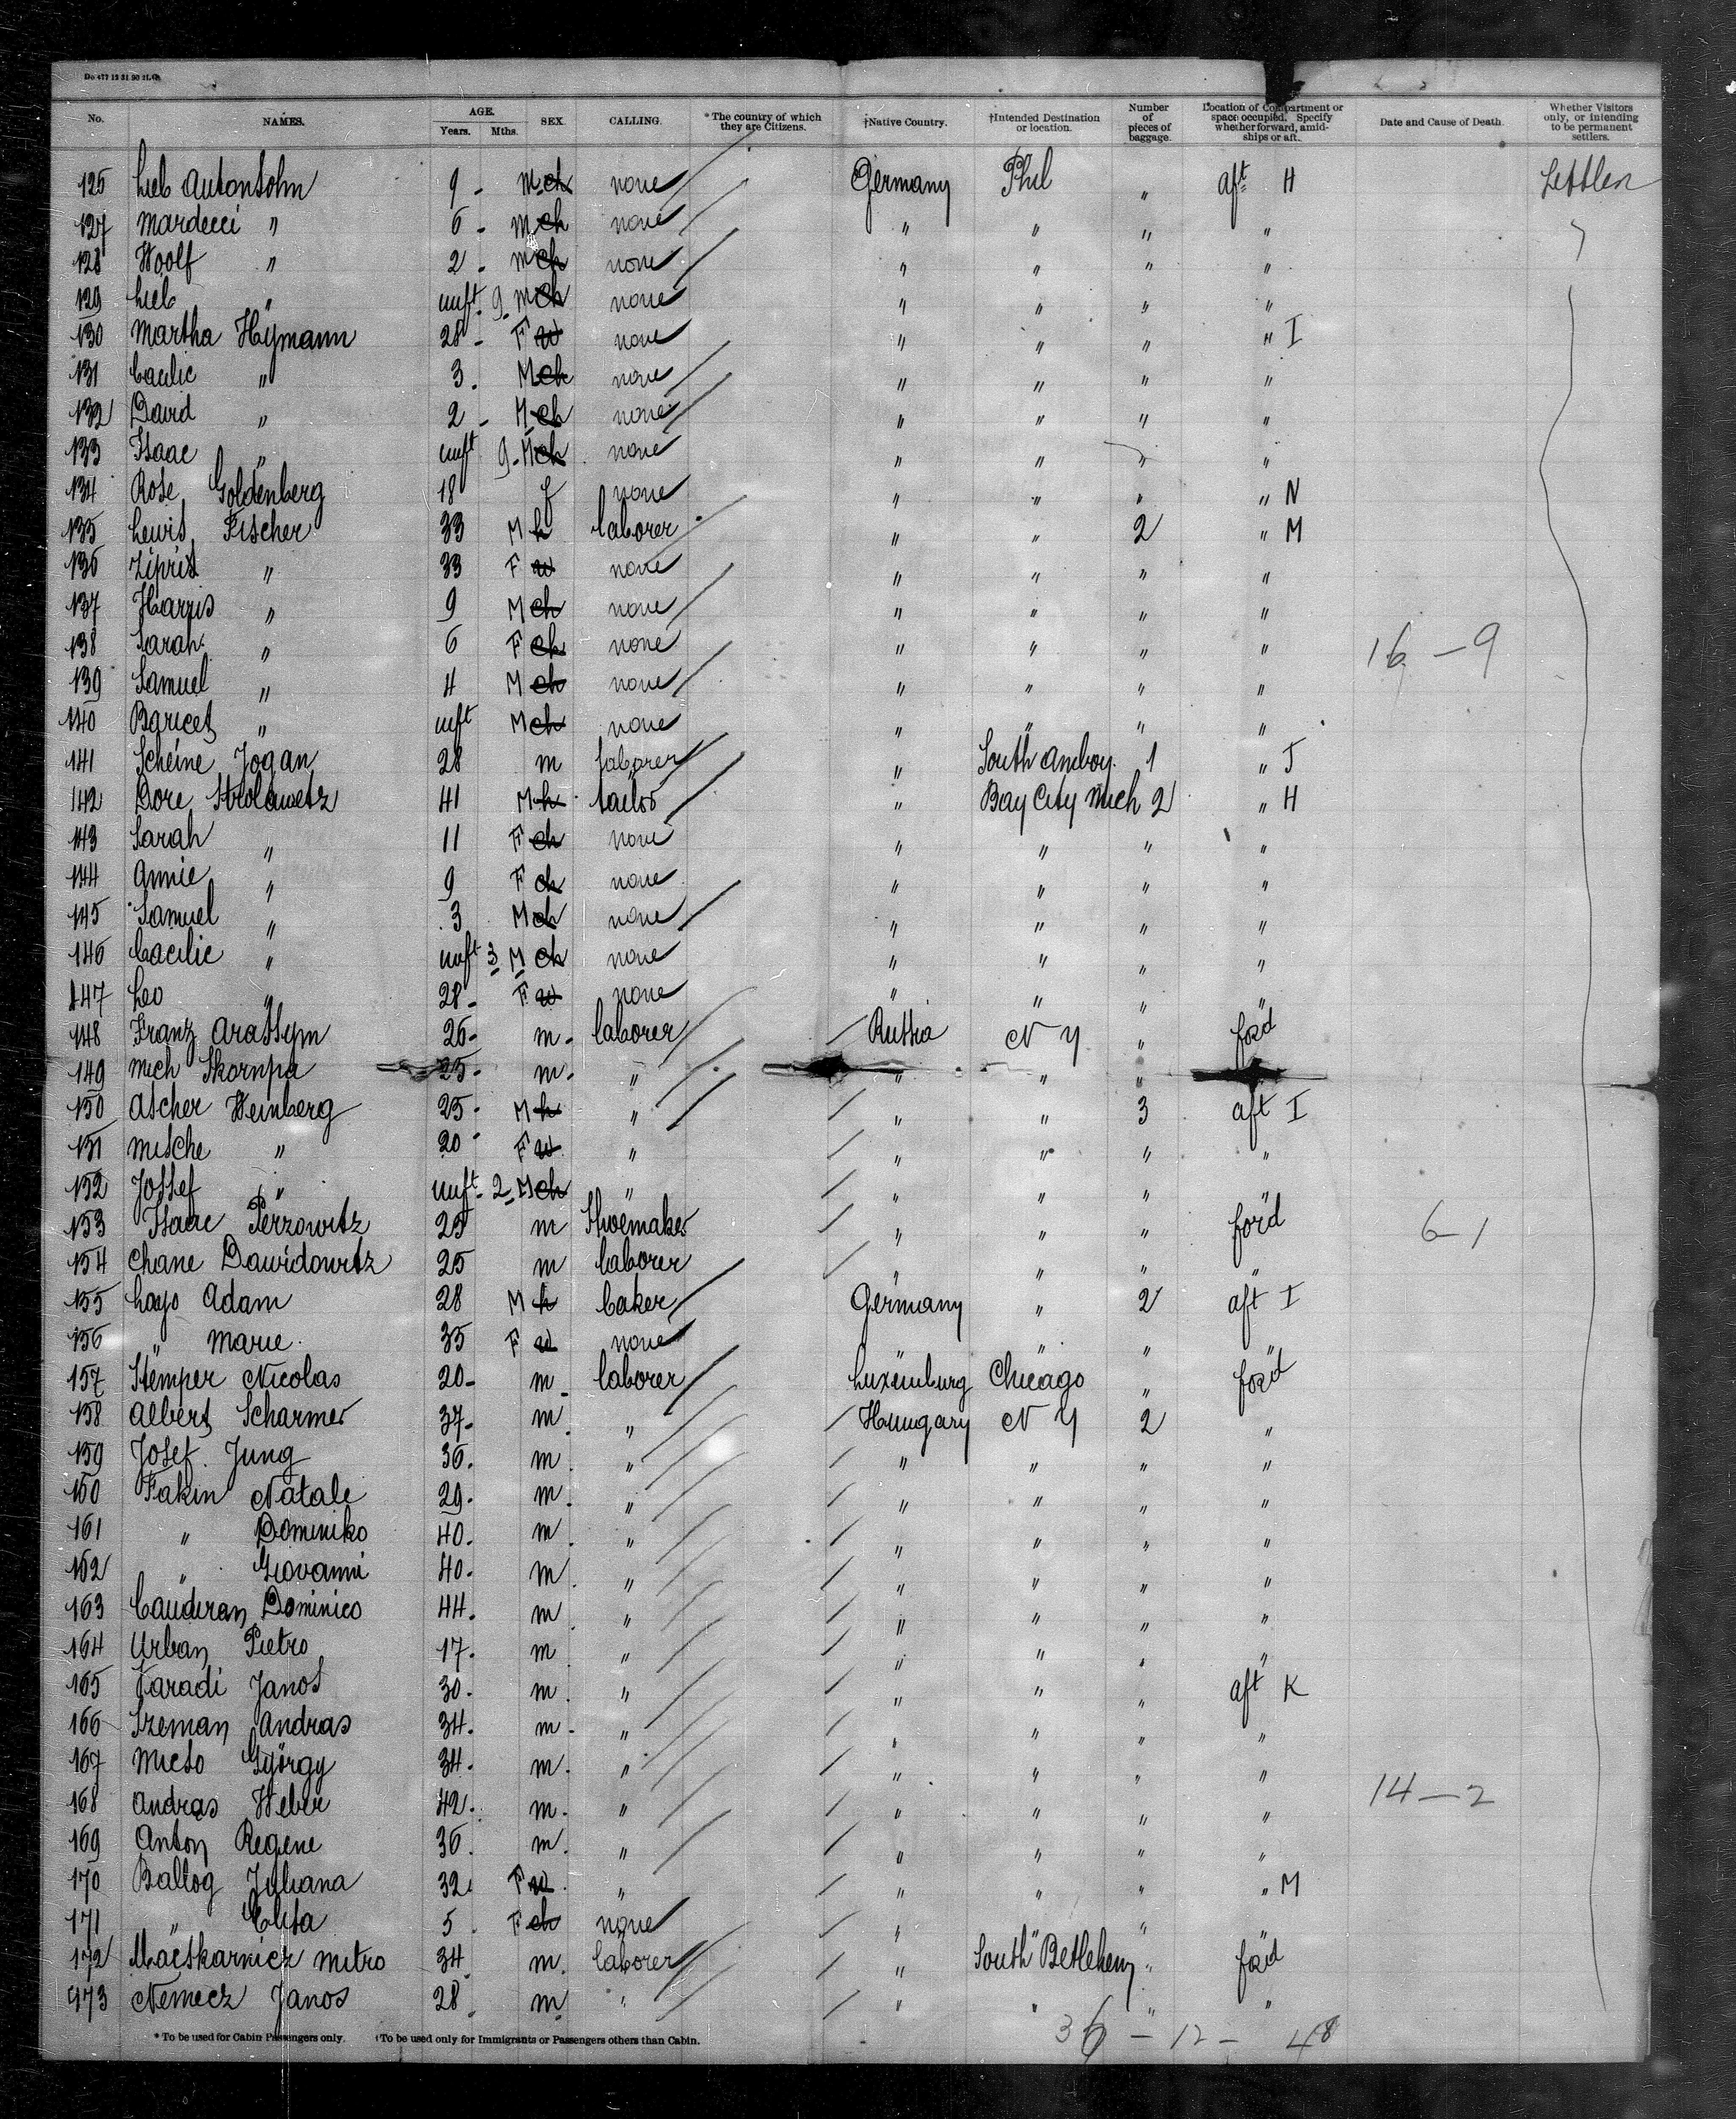 No. NAMES. AGE. Years. Mths. SEX. CALLING. *The country of which they are Citizens. †Native Country. †Intended Destination or location. Number of pieces of baggage. Location of Compartment or space occupied. Specify whether forward, amidships or aft. Date and Cause of Death. Whether Visitors only, or intending to be permanent settlers.
125 Lieb Autonsohn 9 - M ch none Germany Phil " aft H Settler
127 Mardecci " 6 - M ch none " " " "
128 Woolf " 2 - M ch none " " " "
129 Lieb " inft. 9 - M ch none " " " "
130 Martha Hymann 28 - F w none " " " " I
131 Caulie " 3. M ch none " " " "
132 David " 2 - M ch none " " " "
133 Isaac " inft 9 - M ch none " " " "
134 Rose Goldenberg 18 f none " " " " N
135 Lewis Fischer 33 M h laborer " " 2 " M
136 Zipris " 33 F w none " " " "
137 Harris " 9 M ch none " " " "
138 Sarah " 6 F ch none " " " " 16 - 9
139 Samuel " 4 M ch none " " " "
140 " inft M ch none " " " "
141 Scheine Jogan 28 m laborer " South Amboy. 1 " J
142 Dore 41 M h tailor " Bay City Mich 2 " H
143 Sarah " 11 F ch none " " " "
144 Annie " 9 F ch none " " " "
145 Samuel " 3 M ch none " " " "
146 Cacilie " inft 3 M ch none " " " "
147 Leo " 28 - F w none " " " "
148 Franz Arassym 26 - m - laborer Russia N Y " for'd
149 Mich Skornpa 25 - m - " " " "
150 Ascher Weinberg 25 - M h " " " 3 aft I
151 Mische " 20 - F w " " " " "
152 Jossef " inft - 2 - M ch " " " "
153 Isaac Perzowitz 25 m Shoemaker " " " for'd 6 - 1
154 Chane Dawidowitz 25 m laborer " " "
155 Layo Adam 28 M h baker Germany " 2 aft I
156 " Marie 35 F w none " " "
157 Stemper Nicolas 20 - m - laborer Luxemburg Chicago " for'd
158 Albert Scharmer 37 - m. " Hungary N Y 2 "
159 Josef Jung 36. m. " " " " "
160 Fakin Natale 29. m. " " " " "
161 " Dominiko 40. m. " " " " "
162 " Giovanni 40. m. " " " " "
163 Dominico 44. m. " " " " "
164 Urban Pietro 17. m " " " " "
165 Varadi Janos 30. m. " " " " aft K
166 Szeman Andras 34. m. " " " "
167 György 34. m. " " " " "
168 Andras Weber 42. m. " " " " " 14 - 2
169 Anton Regene 36. m. " " " " "
170 Ballog Juliana 32. F w. " " " " " M
171 " Elisa 5. F ch none " " "
172 Mitro 34. m. laborer " South Betlehem " for'd
173 Nemecz Janos 28. m " " " " "
36 - 12 - 48
*To be used for Cabin Passengers only. †To be used only for Immigrants or Passengers others than Cabin.